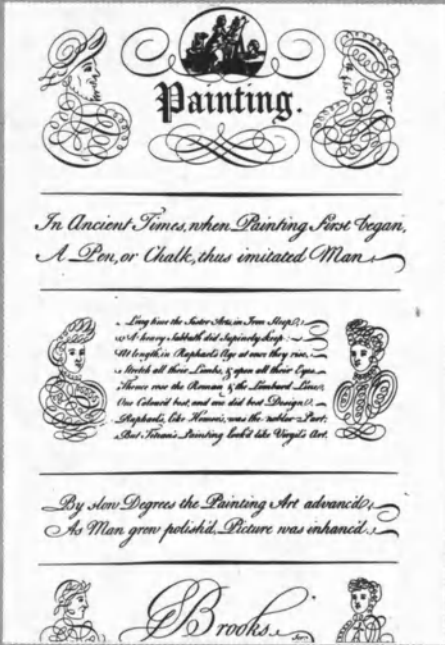 Painting.
In Ancient Times, when Painting first began,
A Pen, or Chalk, thus imitated Man
Long time the Sister Arts, in Iron Sleep,
A heavy Sabbath did supinely keep:
At length, in Raphael's Age at once they rise,
Stretch all their Limbs, & open all their Eyes.
Thence rose the Roman & the Lombard Line:
One Colour'd best, and one did best Design.
Raphael's, like Homer's, was the nobler Part;
But Titian's Painting look'd like Virgil's Art.
By slow Degrees the Painting Art advanc'd,
As Man grew polish'd, Picture was inhanc'd.
Brooks